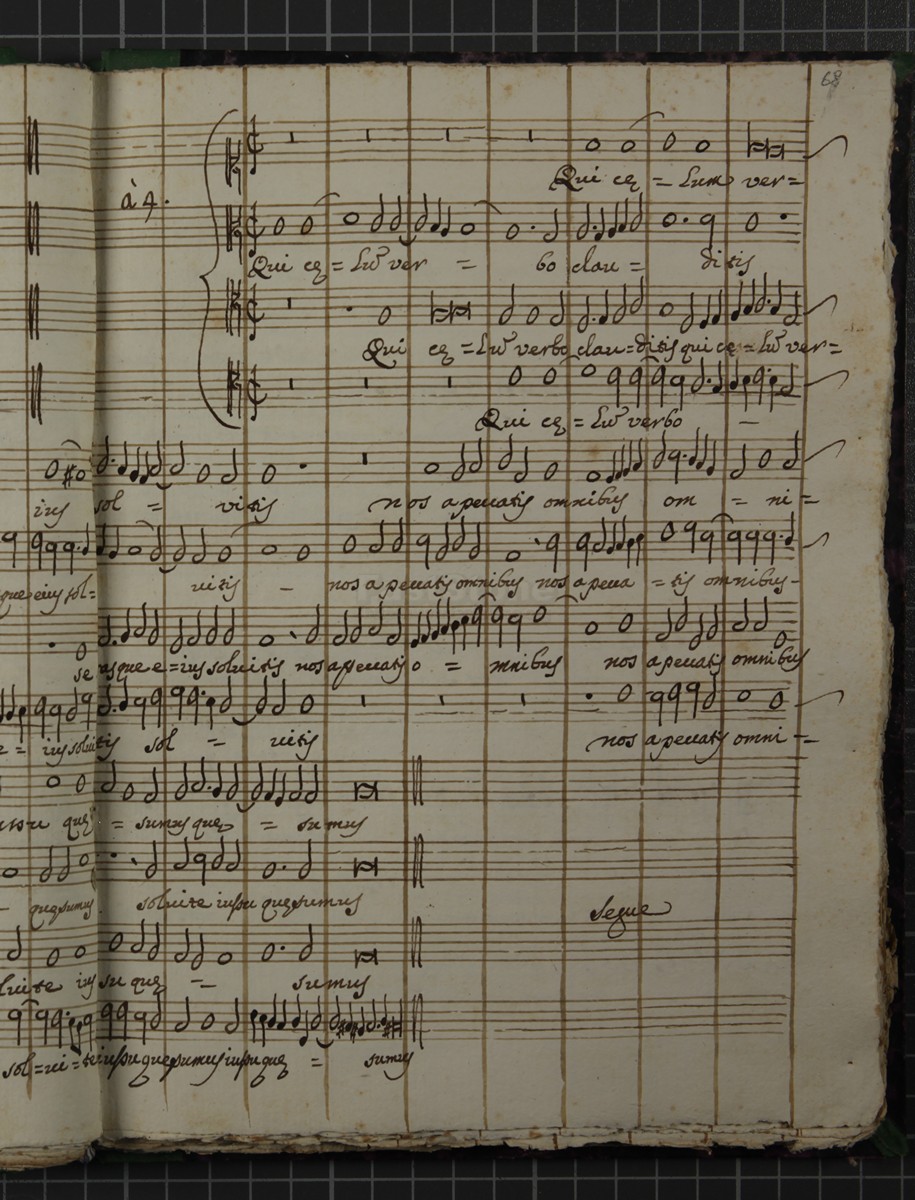 68
à 4.
Qui cę = lum ver=
Qui cę = lũ ver = bo clau = ditis
Qui cę = lũ verbo clau = ditis qui cę = lũ ver =
Qui cę = lũ verbo —
ius sol = vitis nos a peccatis omnibus om = ni =
que eius sol= uitis — nos a peccatis omnibus nos a pecca = tis omnibus -
se rasque e = ius soluitis nos a peccatis o = mnibus nos a peccatis omnibus
= ius soluitis sol = uitis nos a peccatis omni =
iussu quę = sumus quę = sumus
— quęsumus soluite iussu quęsumus
luite ius su quę — sumus
sol = ui = te iussu quęsumus iussu quę = sumus
Segue